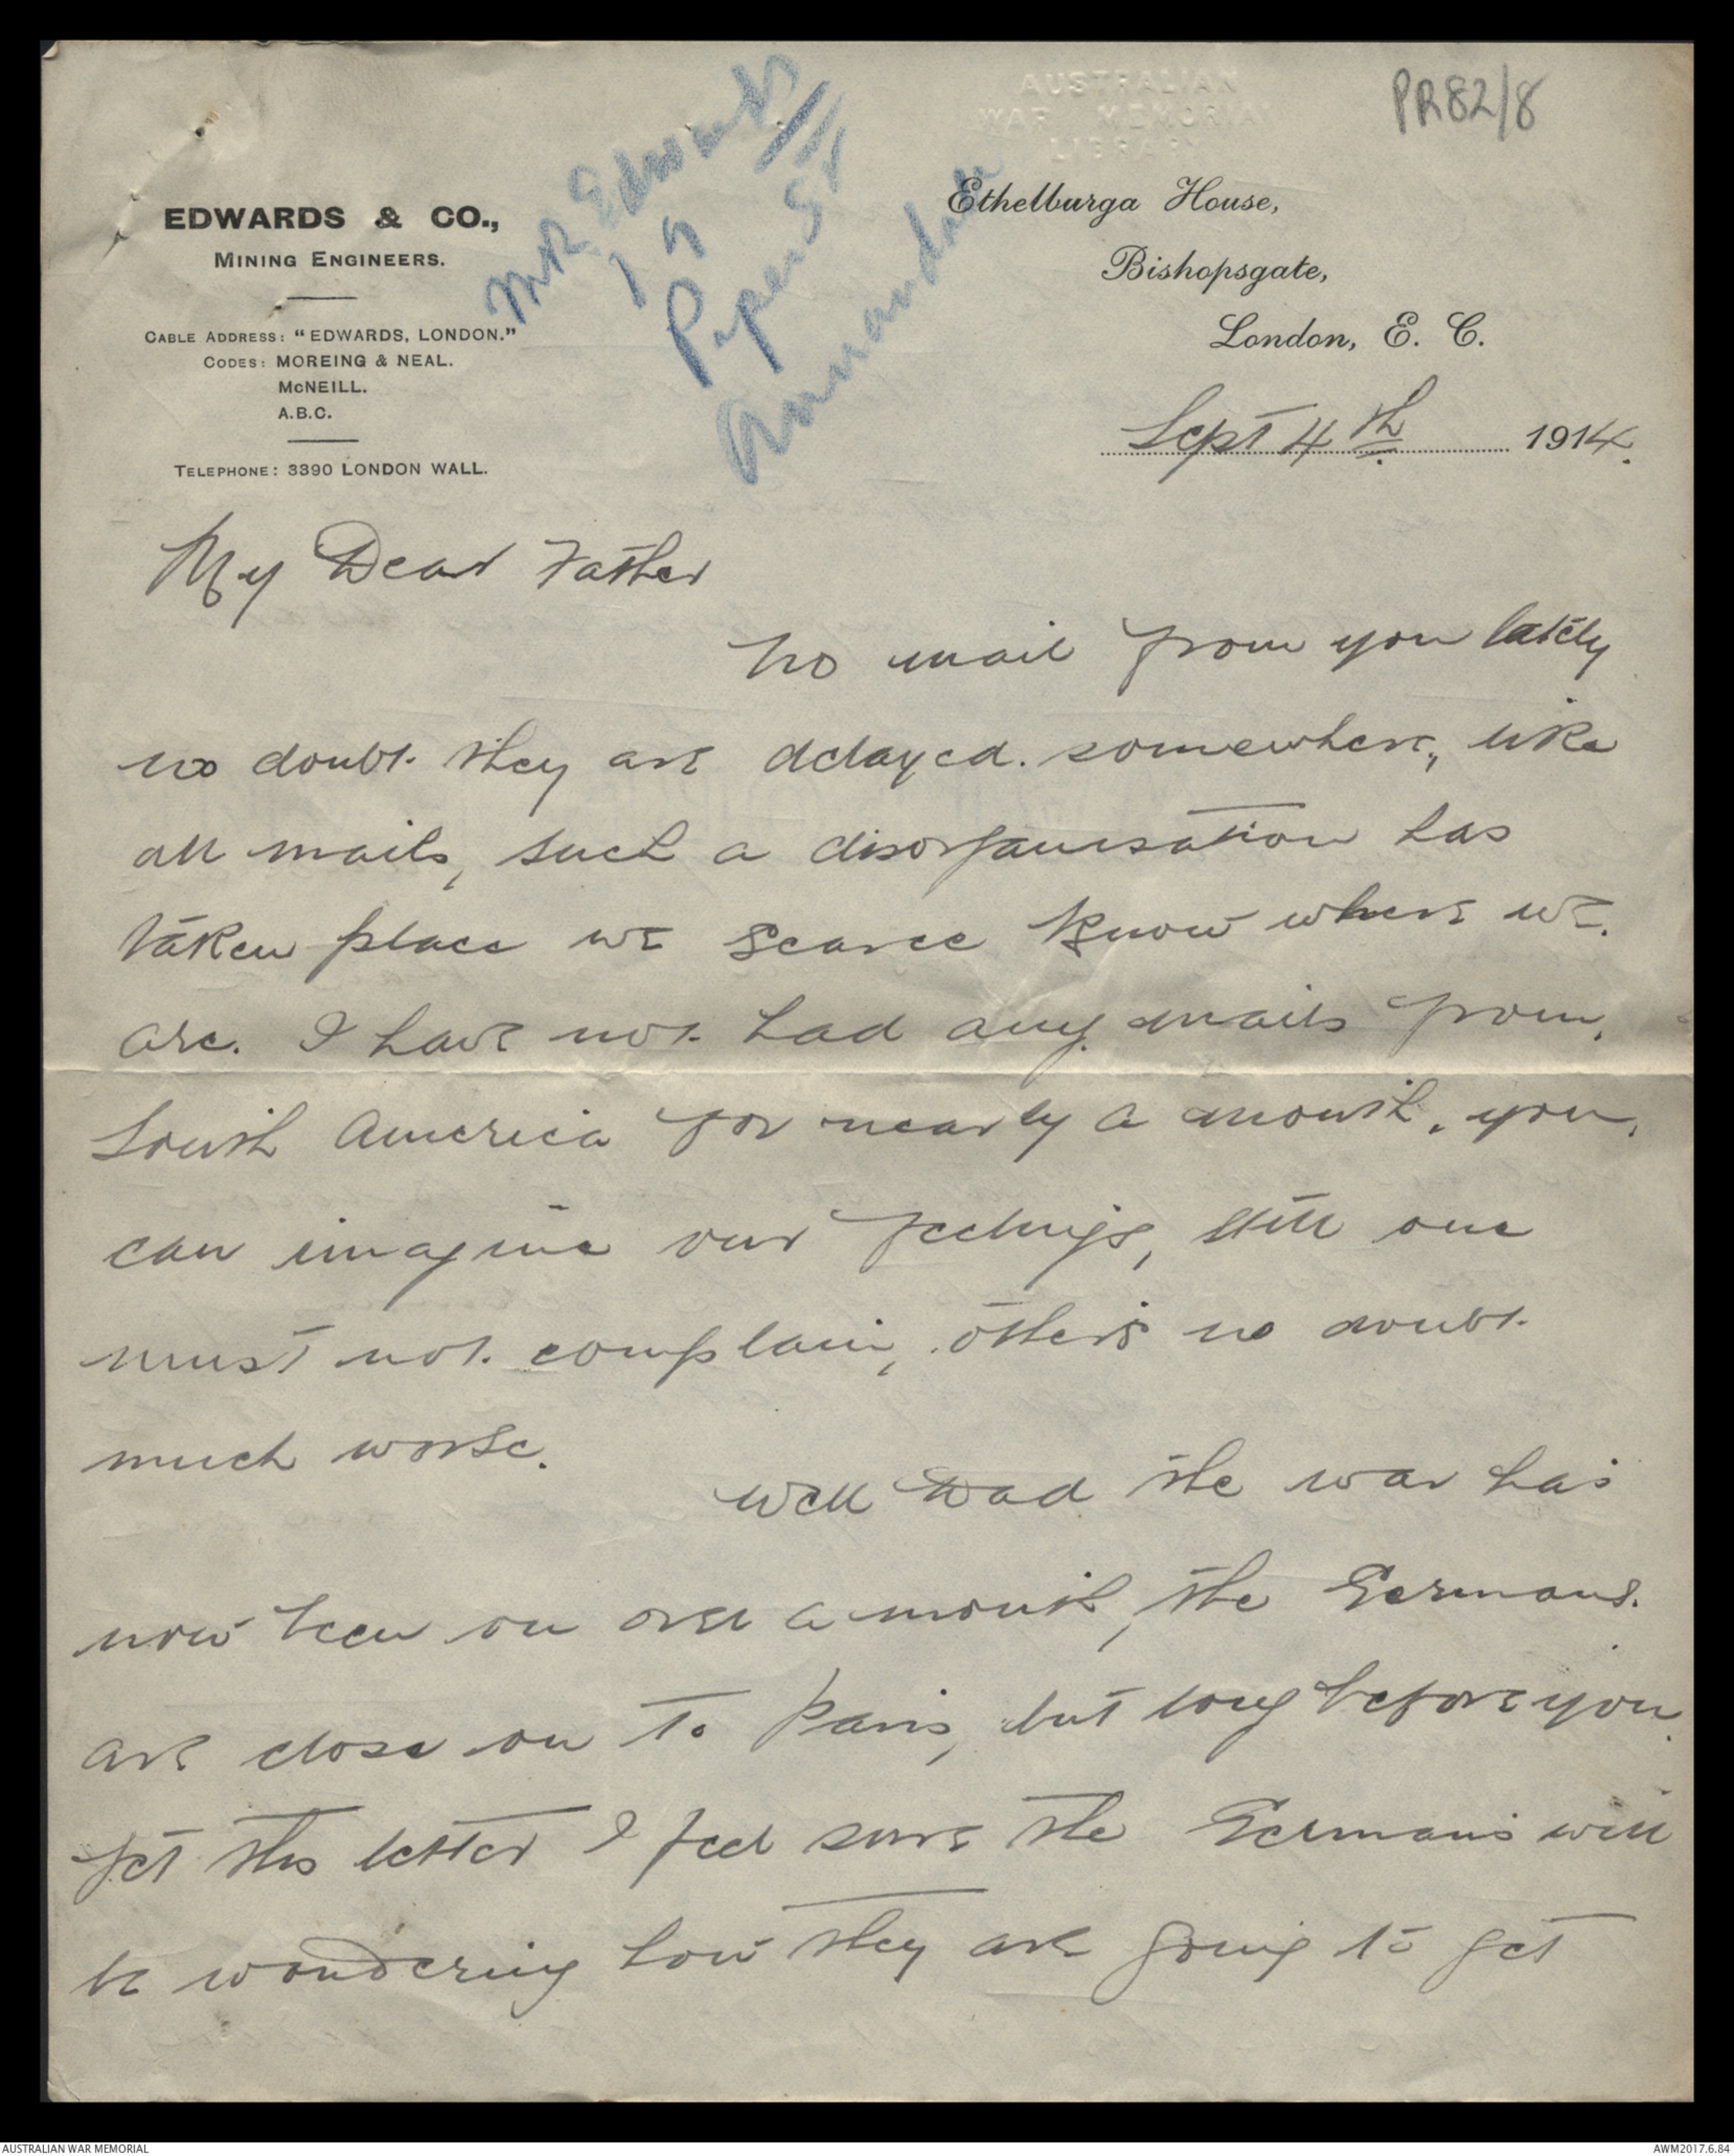 AUSTRALIAN
WAR MEMORIAL
LIBRARY
PR82/8
EDWARDS & CO.,
MINING ENGINEERS.
CABLE ADDRESS: "EDWARDS, LONDON."
CODES: MOREING & NEAL.
McNEILL.
A.B.C.
TELEPHONE: 3390 LONDON WALL.
Mr Edwards
19
Piper St
Annandale
Ethelburga House,
Bishopsgate,
London, E. C.
Sept 4th 1914.
My Dear Father
No mail from you lately
no doubt. they are delayed. somewhere, like
all mails, such a disorganisation has
taken place we scarce know where we.
are. I have not. had any mails from.
South America for nearly a month. you.
can imagine our feelings, still one
must not. complain, others no doubt.
much worse.
Well Dad the war has
now been on over a month, the Germans.
are close on to Paris, but long before you.
get this letter I feel sure the Germans will
be wondering how they are going to get
AUSTRALIAN WAR MEMORIAL
AWM2017.6.84